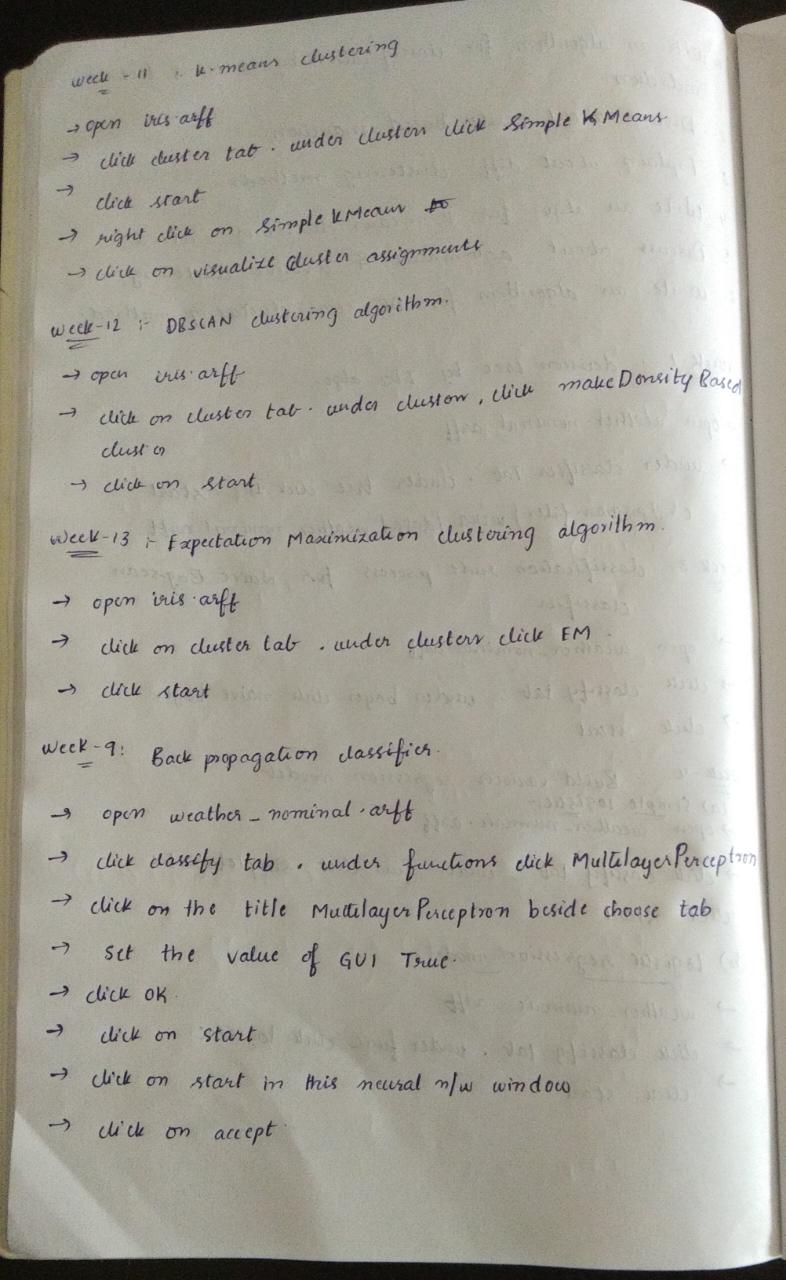 week - 11 : k-means clustering
→ open iris.arff
→ click cluster tab. under clusters click Simple K Means
→ click start
→ right click on Simple k Means
→ click on visualize cluster assignments
week-12 :- DBSCAN clustering algorithm.
→ open iris.arff
→ click on cluster tab. under clusters, click make Density Based
cluster
→ click on start
week-13 :- Expectation Maximization clustering algorithm.
→ open iris.arff
→ click on cluster tab. under clusters click EM.
→ click start
week-9: Back propagation classifier.
→ open weather_nominal.arff
→ click classify tab. under functions click Multilayer Perceptron
→ click on the title Multilayer Perceptron beside choose tab
→ Set the value of GUI True.
→ click OK.
→ click on start
→ click on start in this neural n/w window
→ click on accept.